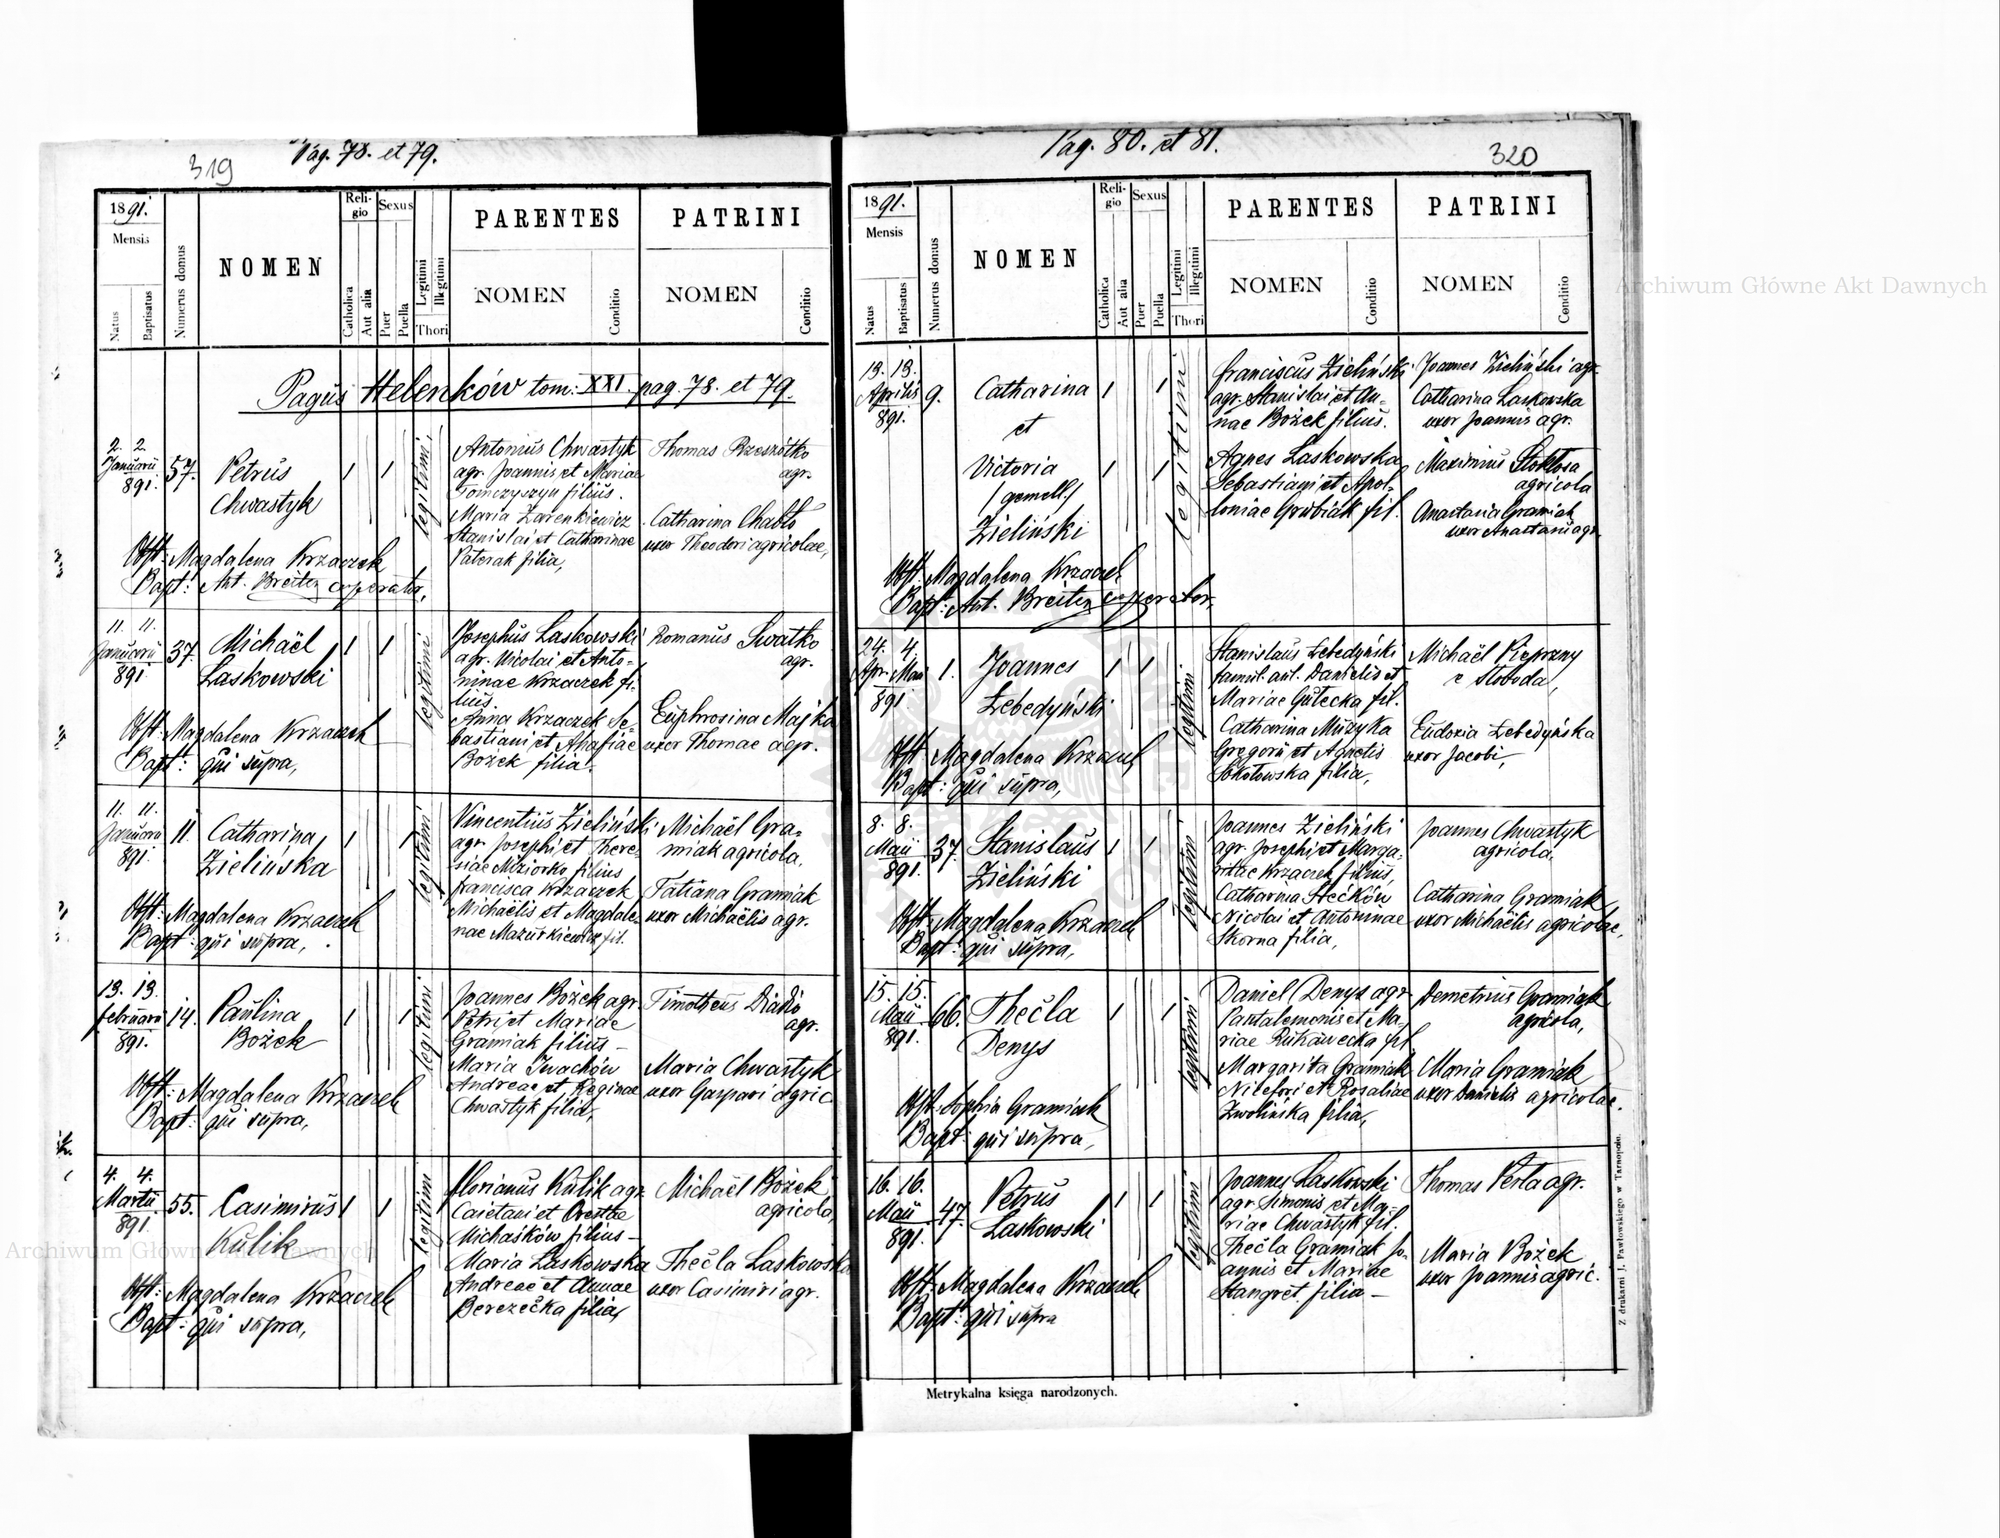 Pag. 78. et 79.
319
1891.
Mensis
Natus
Baptisatus
Numerus domus
NOMEN
Religio
Catholica
Aut alia
Sexus
Puer
Puella
Legitimi
Illegitimi
Thori
PARENTES
NOMEN
Conditio
PATRINI
NOMEN
Conditio
Pagus Helenków tom: XXI. pag. 78. et 79.
2. 2.
Januarii
891.
57.
Petrus
Chwastyk
1 1
legitimi
Antonius Chwastyk
agr. Joannis et Mariae
Tomczyszyn filius.
Maria Zarenkiewicz
Stanislai et Catharinae
Paterak filia,
Thomas Rzeszótko
agr.
Catharina Chabło
uxor Theodori agricolae,
Obst: Magdalena Krzaczek
Bapt: Ant. Breiten cooperator,
11. 11.
Januarii
891.
37.
Michaël
Laskowski
1 1
legitimi
Josephus Laskowski
agr. Nicolai et Anto-
ninae Krzaczek fi-
lius.
Anna Krzaczek Se-
bastiani et Ahafiae
Bożek filia.
Romanus Swatko
agr.
Euphrosina Majka
uxor Thomae agr.
Obst: Magdalena Krzaczek
Bapt: qui supra,
11. 11.
Januarii
891.
11.
Catharina
Zielińska
1 1
legitimi
Vincentius Zieliński
agr. Josephi et There-
siae Miziorko filius
Francisca Krzaczek
Michaëlis et Magdale-
nae Mazurkiewicz fil.
Michaël Gra-
miak agricola,
Tatiana Gramiak
uxor Michaëlis agr.
Obst: Magdalena Krzaczek
Bapt: qui supra,
13. 13.
Februarii
891.
14.
Paulina
Bożek
1 1
legitimi
Joannes Bożek agr.
Petri et Mariae
Gramiak filius –
Maria Iwachów
Andreae et Reginae
Chwastyk filia,
Timotheus
agr.
Maria Chwastyk
uxor Gaspari agric.
Obst: Magdalena Krzaczek
Bapt: qui supra,
4. 4.
Martii
891.
55.
Casimirus
Kulik
1 1
legitimi
Florianus Kulik agr.
Caietani et
Michaśków filius –
Maria Laskowska
Andreae et Annae
Berezečka filia,
Michaël Bożek
agricola,
Thecla Laskowska
uxor Casimiri agr.
Obst: Magdalena Krzaczek
Bapt: qui supra,
Pag. 80. et 81.
320
1891.
Mensis
Natus
Baptisatus
Numerus domus
NOMEN
Religio
Catholica
Aut alia
Sexus
Puer
Puella
Legitimi
Illegitimi
Thori
PARENTES
NOMEN
Conditio
PATRINI
NOMEN
Conditio
13. 13.
Aprilis
891.
9.
Catharina
et
Victoria
/gemell./
Zieliński
1 1
1 1
legitimi
Franciscus Zieliński
agr. Stanislai et An-
nae Bożek filius.
Agnes Laskowska
Sebastiani et Apol-
loniae Grubiak fil.
Joannes Zieliński agr.
Catharina Laskowska
uxor Joannis agr.
Maximus Stokłosa
agricola
Anastasia Gramiak
uxor Anastasii agr.
Obst: Magdalena Krzaczek
Bapt: Ant. Breiten cooperator,
24. 4.
Apr. Maii
891
1.
Joannes
Łebedyński
1 1
legitimi
Stanislaus Łebedyński
famil. aul. Danielis et
Mariae Gutecka fil.
Catharina Muzyka
Gregorii et Agnetis
Sokołowska filia,
Michaël Pieprzny
e Słoboda,
Eudoxia Łebedyńska
uxor Jacobi,
Obst: Magdalena Krzaczek
Bapt: qui supra,
8. 8.
Maii
891.
37.
Stanislaus
Zieliński
1 1
legitimi
Joannes Zieliński
agr. Josephi et Marga-
ritae Krzaczek filius,
Catharina Stećków
Nicolai et Antoninae
Skorna filia,
Joannes Chwastyk
agricola,
Catharina Gramiak
uxor Michaëlis agricolae,
Obst: Magdalena Krzaczek
Bapt: qui supra,
15. 15.
Maii
891.
66.
Thecla
Denys
1 1
legitimi
Daniel Denys agr.
Pantalemonis et Ma-
riae Rukawecka fil
Margarita Gramiak
Nicefori et Rosaliae
Zwolińska filia,
Demetrius Gramiak
agricola,
Maria Gramiak
uxor Danielis agricolae.
Obst: Sophia Gramiak
Bapt: qui supra,
16. 16.
Maii
891.
47.
Petrus
Laskowski
1 1
legitimi
Joannes Laskowski
agr. Simonis et Ma-
riae Chwastyk fil.
Thecla Gramiak Jo-
annis et Mariae
Stangret filia –
Thomas Perła agr.
Maria Bożek
uxor Joannis agric.
Obst: Magdalena Krzaczek
Bapt: qui supra
Metrykalna księga narodzonych.
Z drukarni J. Pawłowskiego w Tarnopolu.
Archiwum Główne Akt Dawnych
Archiwum Główne Akt Dawnych